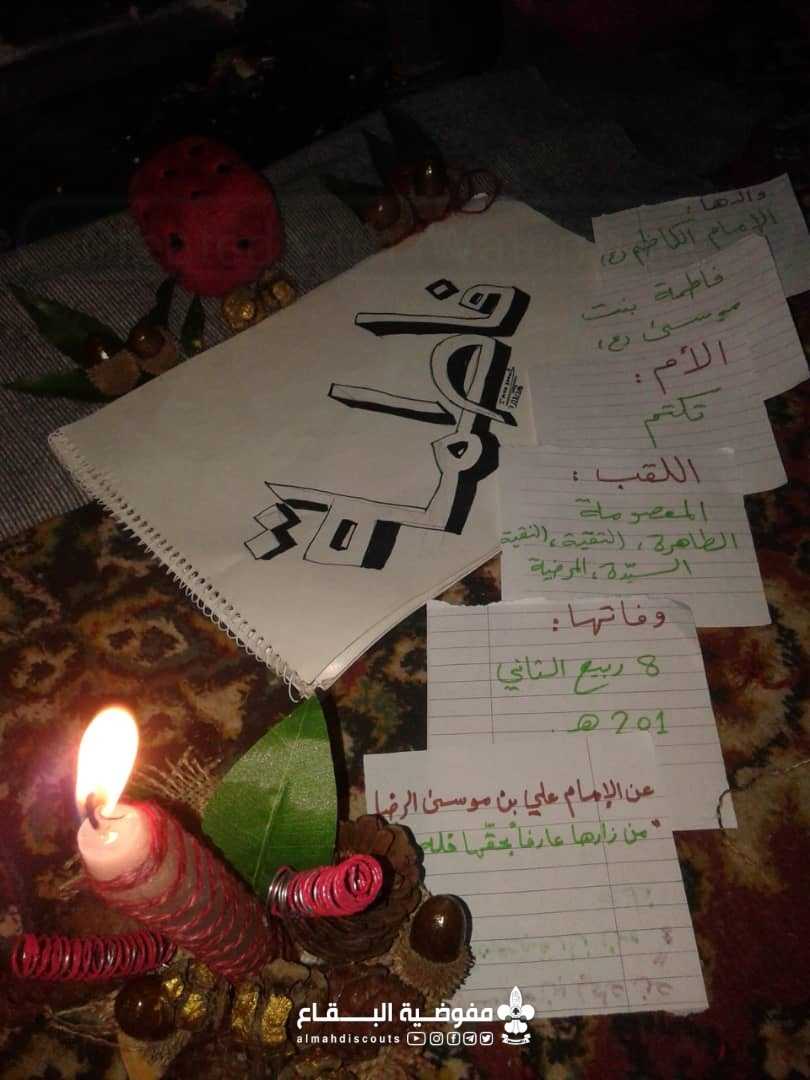 فاطمة
والدها:
الإمام الكاظم (ع)
فاطمة بنت
موسى (ع)
الأم:
تكتم
اللقب:
المعصومة
الطاهرة، التقية، النقية
السيّدة، المرضية
وفاتها:
8 ربيع الثاني
201 هـ.
عن الإمام علي بن موسى الرضا
"من زارها عارفاً بحقّها فله
مفوضية البقاع
almahdiscouts